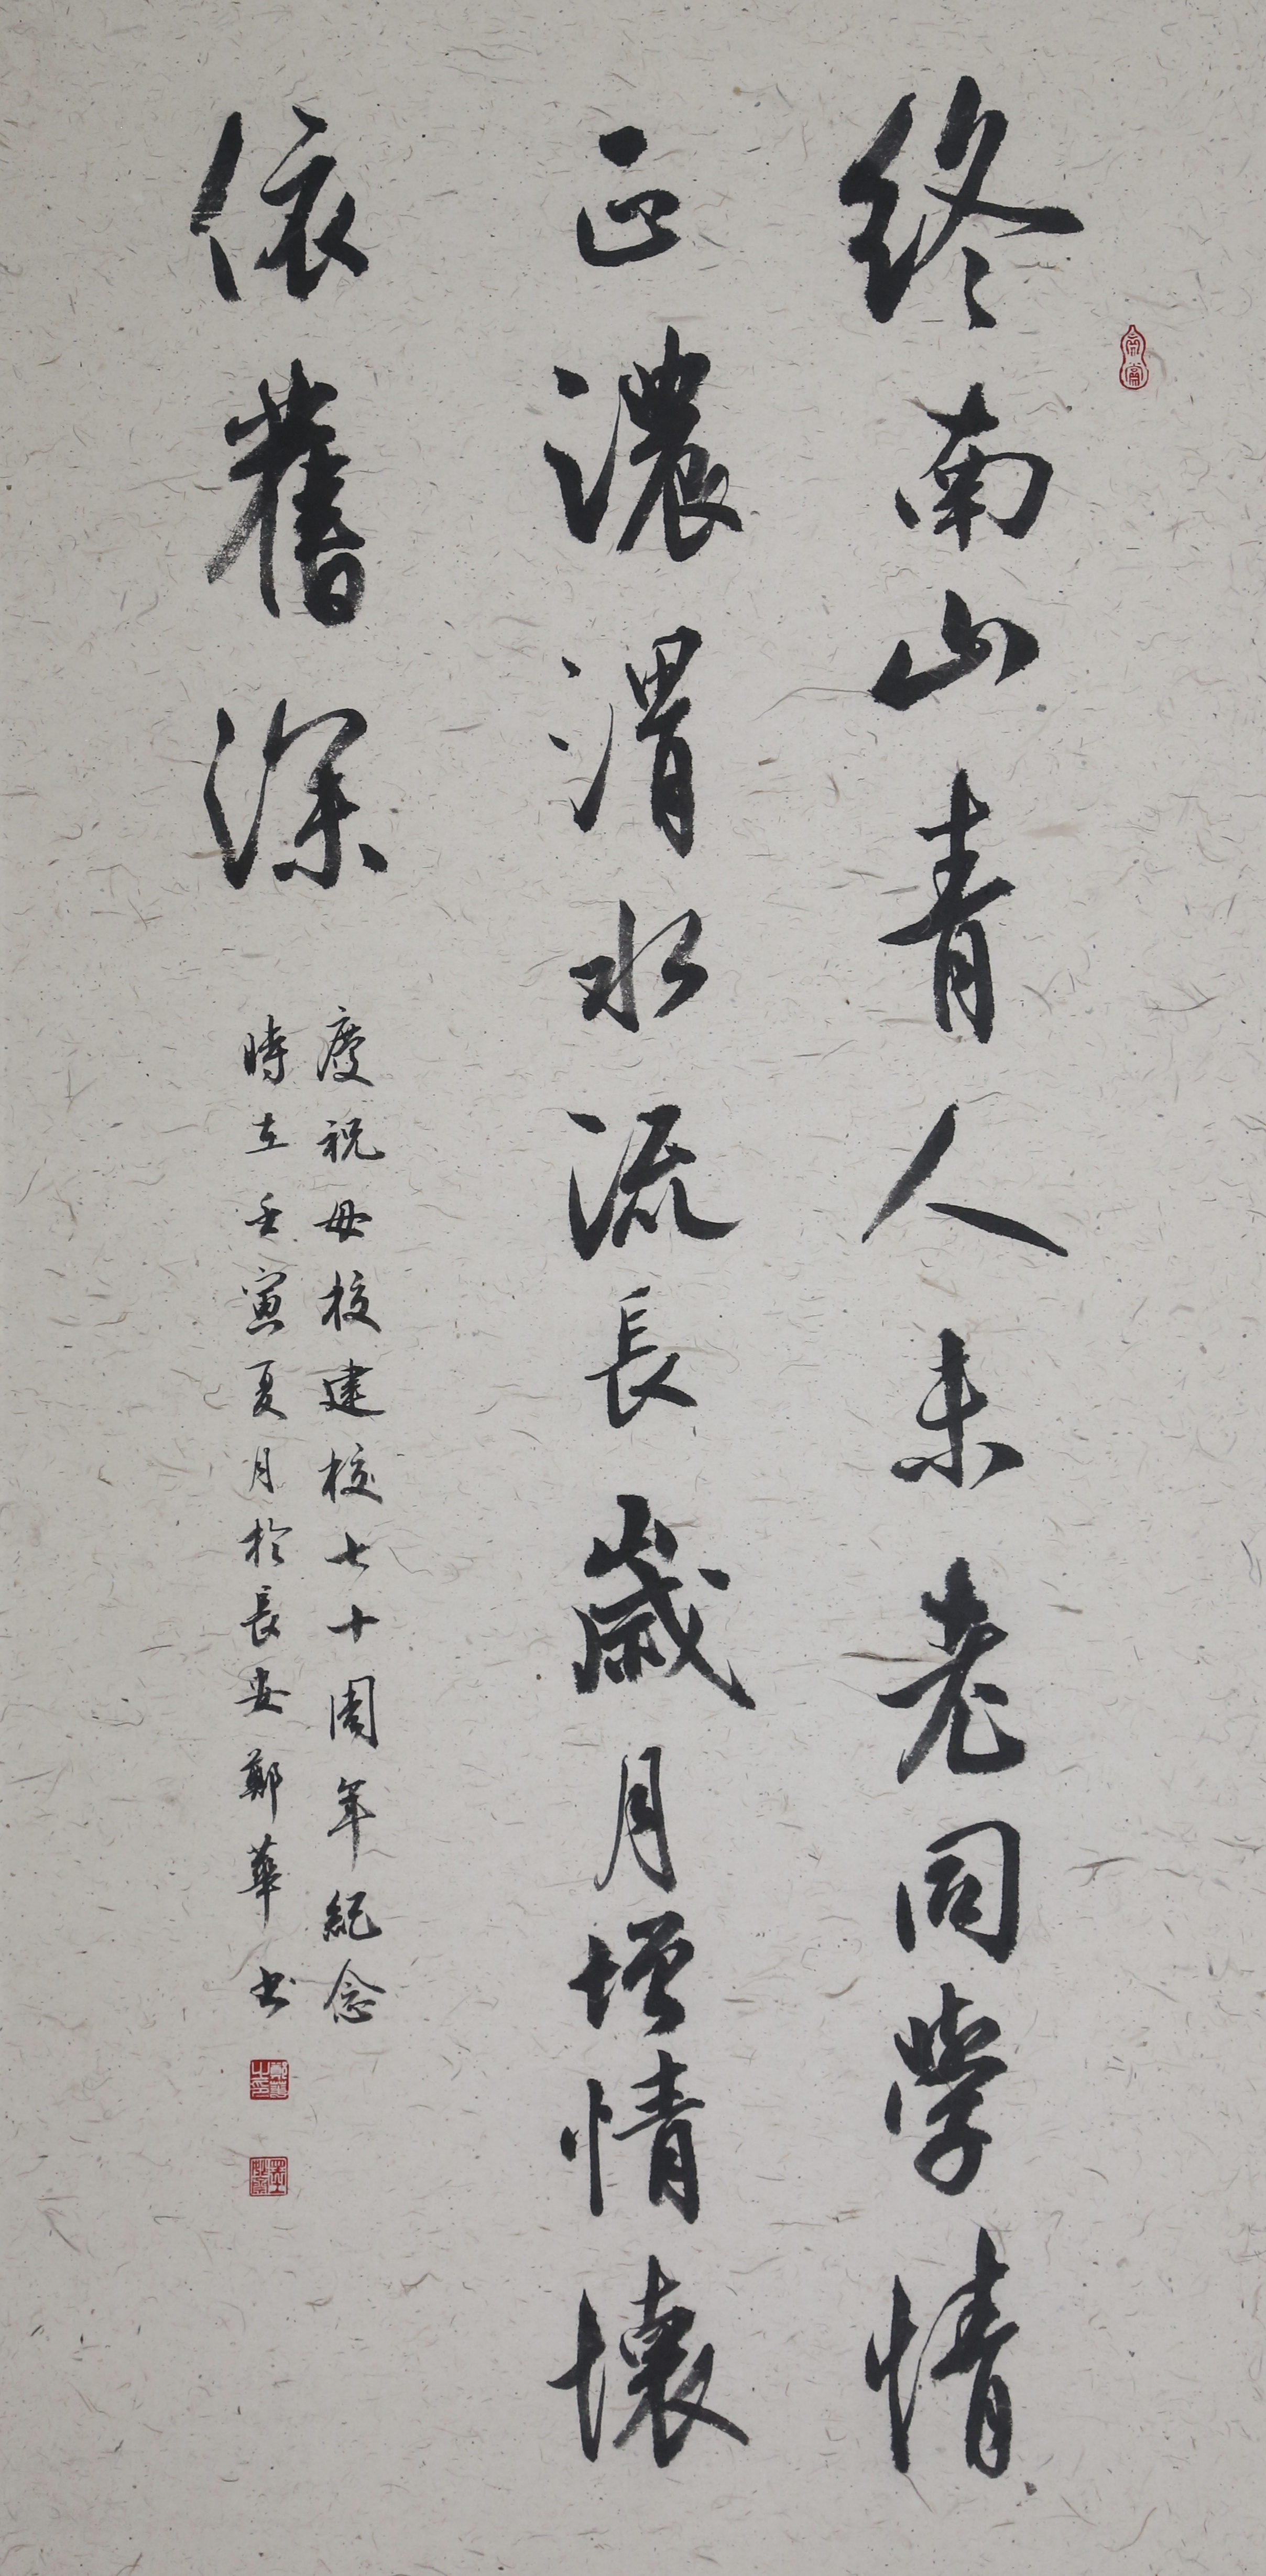 終南山青人未老同學情
正濃渭水流長歲月增情懷
依舊深
慶祝母校建校七十周年紀念
時在壬寅夏月於長安鄭華书